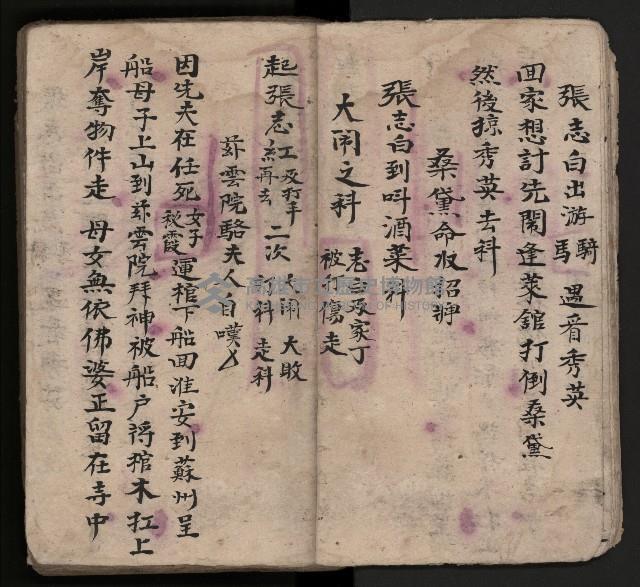 張志白出游騎馬 遇音秀英
回家想討先鬧逢萊舘打倒桑黛
然後掠秀英去科
桑黛命收招牌
張志白到叫酒菜科
大闹之科 志白及家丁被打傷走
起張志紅及打手再去 二次大闹打科 大敗走科
菻雲院駱夫人白嘆
因先夫在任死女子秋霞運棺下船回淮安到蘇州呈
船母子上山到菻雲院拜神被船户將棺木扛上
岸奪物件走 母女無依佛婆正留在寺中
高雄市立歷史博物館
KAOHSIUNG MUSEUM OF HISTORY